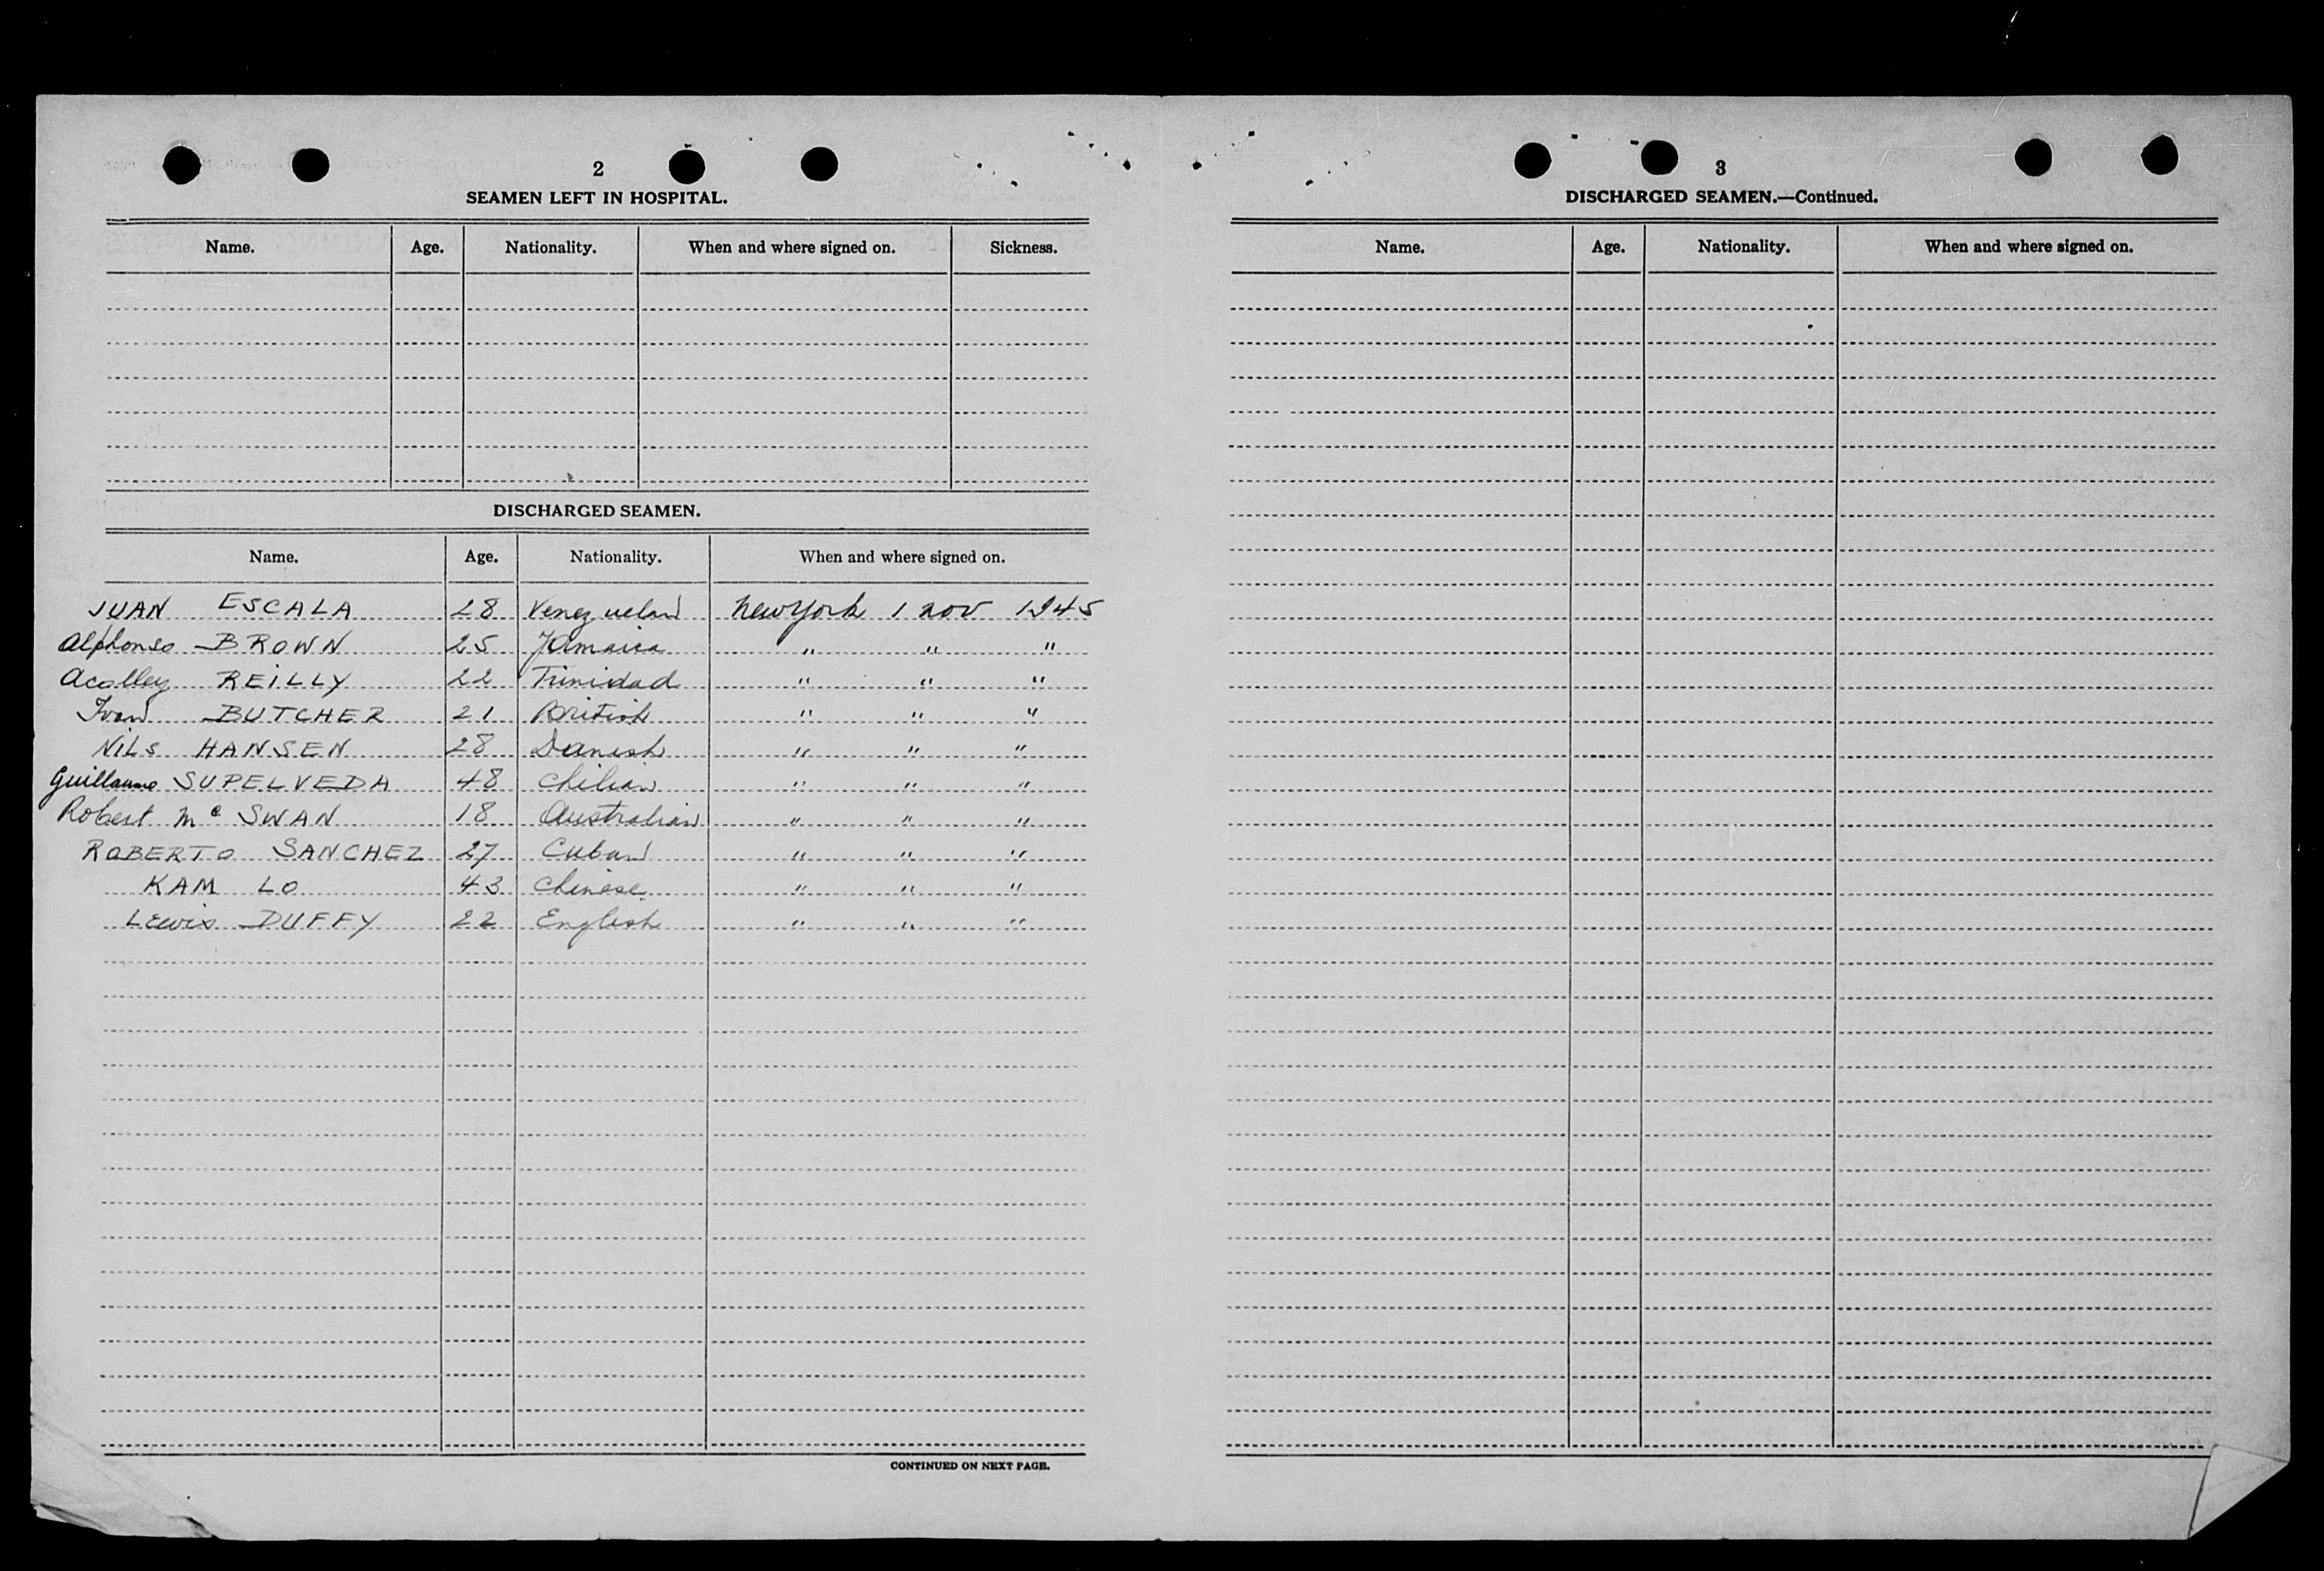 2
SEAMEN LEFT IN HOSPITAL.
Name. Age. Nationality. When and where signed on. Sickness.
DISCHARGED SEAMEN.
Name. Age. Nationality. When and where signed on.
JUAN ESCALA 28 Venezuelan New York 1 nov 1945
Alphonso BROWN 25 Jamaica " " "
Acolley REILLY 22 Trinidad " " "
Ivan BUTCHER 21 British " " "
NiLs HANSEN 28 Danish " " "
Guillaumo SUPELVEDA 48 Chilian " " "
Robert Mc SWAN 18 Australian " " "
ROBERTO SANCHEZ 27 Cuban " " "
KAM LO 43 Chinese " " "
Lewis DUFFY 22 English " " "
CONTINUED ON NEXT PAGE.
3
DISCHARGED SEAMEN.—Continued.
Name. Age. Nationality. When and where signed on.